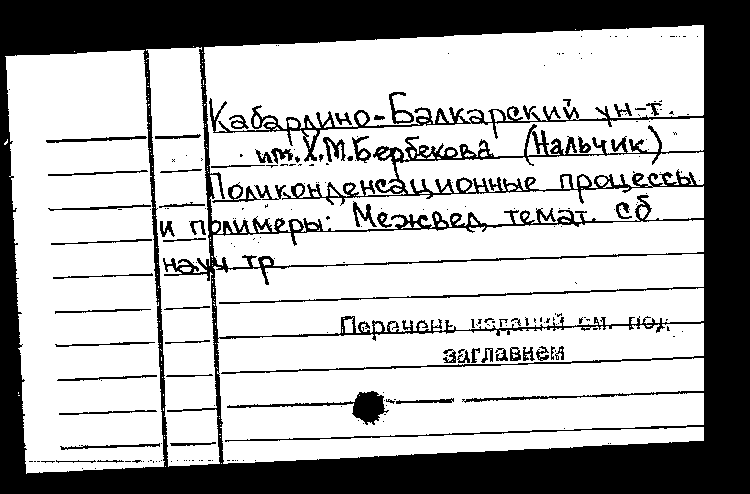 Кабардино-Балкарский ун-т.
им. Х.М.Бербекова (Нальчик)
Поликонденсационные процессы
и полимеры: Межвед. темат. сб
науч тр
Перечень изданий см. под
заглавием